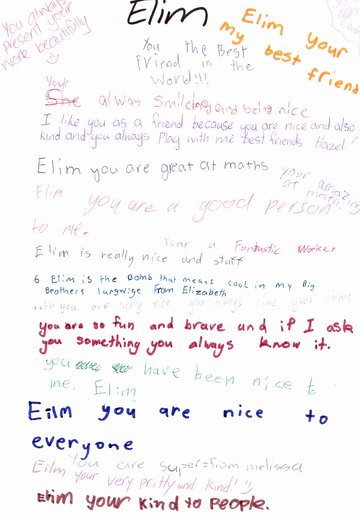 Elim
You always
present your
work beautifully
Elim your
my best friend
You the Best
friend in the
World!!!
You're
She always smileing and being nice
I like you as a friend because you are nice and also
kind and you always Play with me best friends Hazel!
Elim you are great at maths
your amazing
at math
Elim you are a good person
to me.
Your a Fantastic Worker
Elim is really nice and stuff
6 Elim is the Bomb that means cool in my Big
Brothers languige From Elizabeth
you are very nice you always
you are so fun and brave and if I ask
you something you always know it.
you have been nice to
me. Elim
Eilm you are nice to
everyone
You are super from melissa
Eilm your very pritty and kind!
Elim your kind to people.